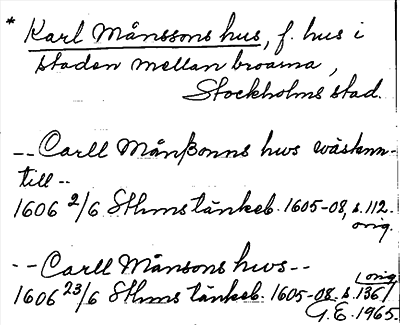 * Karl Månssons hus, f. hus i
staden mellan broarna,
Stockholms stad.
-- Carll Månßonns hws wästenn-
till --
1606 2/6 Sthms tänkeb. 1605-08, s. 112.
orig.
-- Carll Månsons hws --
orig.
1606 23/6 Sthms tänkeb. 1605-08. s. 136/
G.E. 1965.